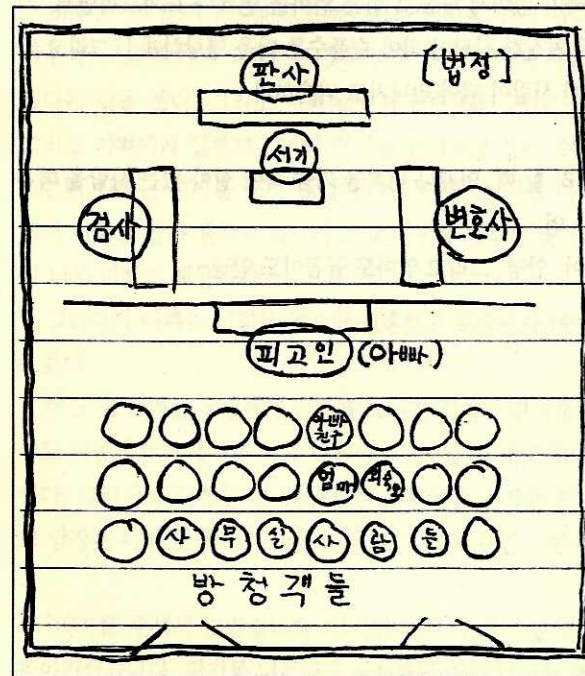 [법정]
판사
서기
검사 변호사
피고인 (아빠)
아빠친구
엄마 외숙모
사무실사람들
방청객들